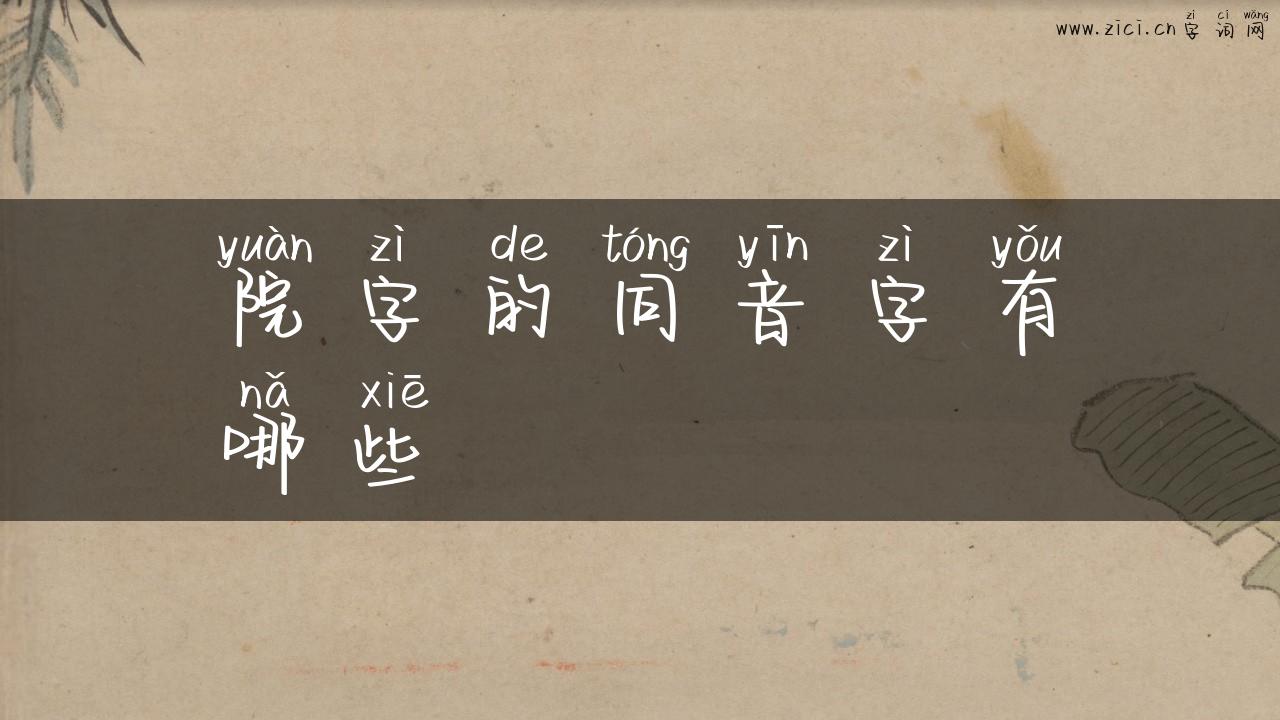 zì cí wǎng
www.zici.cn 字 词 网
yuàn zì de tóng yīn zì yǒu
院 字 的 同 音 字 有
nǎ xiē
哪 些